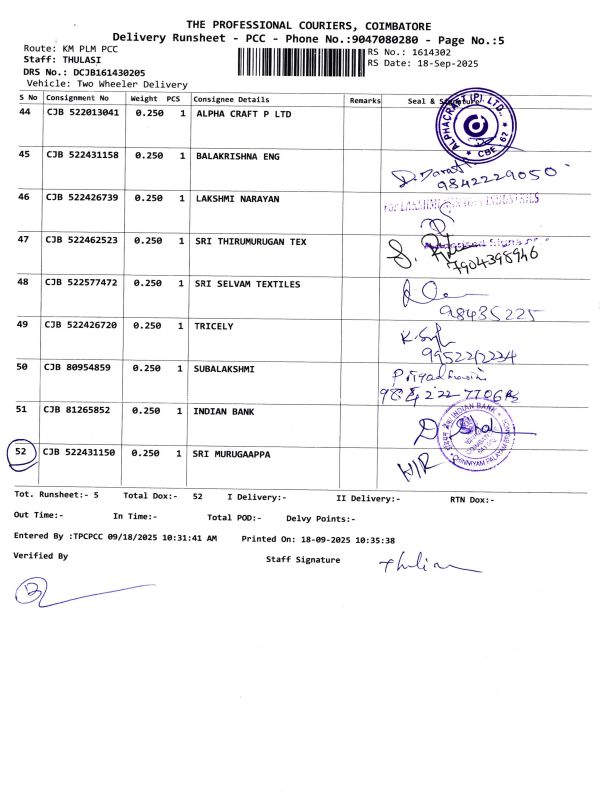 THE PROFESSIONAL COURIERS, COIMBATORE
Delivery Runsheet - PCC - Phone No.:9047080280 - Page No.:5
Route: KM PLM PCC
RS No.: 1614302
Staff: THULASI
RS Date: 18-Sep-2025
DRS No.: DCJB161430205
Vehicle: Two Wheeler Delivery
S No Consignment No Weight PCS Consignee Details Remarks Seal & Signature
44 CJB 522013041 0.250 1 ALPHA CRAFT P LTD
ALPHACRAFT (P) LTD.,
* CBE - 62 *
45 CJB 522431158 0.250 1 BALAKRISHNA ENG
9842229050
46 CJB 522426739 0.250 1 LAKSHMI NARAYAN
For LAKSHMI INDUSTRIES
47 CJB 522462523 0.250 1 SRI THIRUMURUGAN TEX
7904398946
48 CJB 522577472 0.250 1 SRI SELVAM TEXTILES
98435225
49 CJB 522426720 0.250 1 TRICELY
50 CJB 80954859 0.250 1 SUBALAKSHMI
51 CJB 81265852 0.250 1 INDIAN BANK
INDIAN BANK
52 CJB 522431150 0.250 1 SRI MURUGAAPPA
H/R
Tot. Runsheet:- 5 Total Dox:- 52 I Delivery:- II Delivery:- RTN Dox:-
Out Time:- In Time:- Total POD:- Delvy Points:-
Entered By :TPCPCC 09/18/2025 10:31:41 AM Printed On: 18-09-2025 10:35:38
Verified By Staff Signature